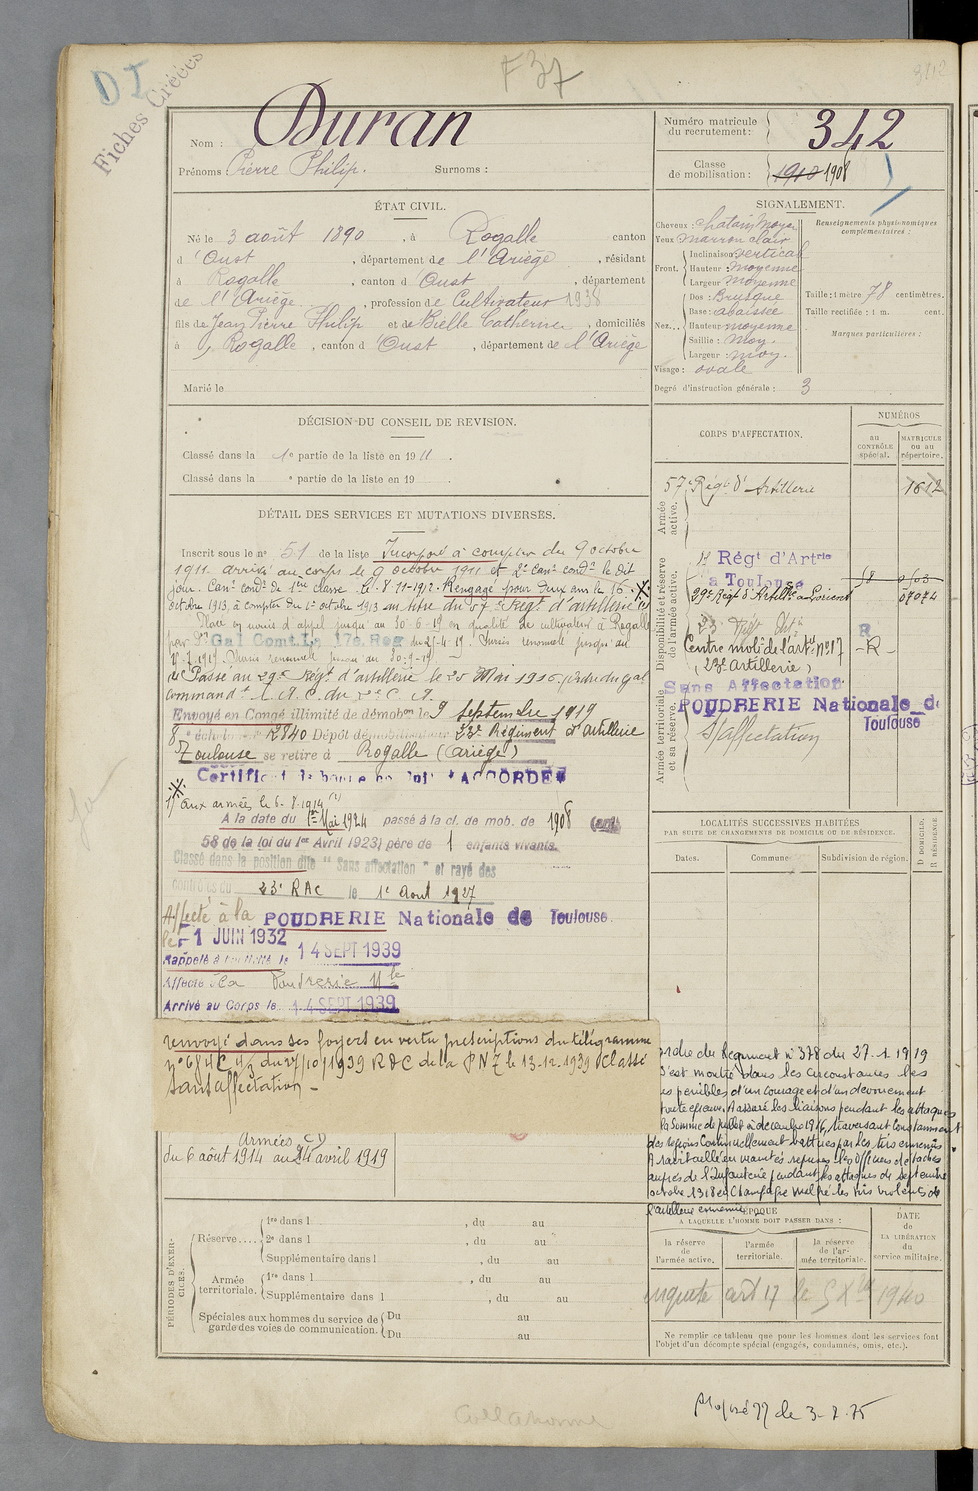 F 37
342
DI
Fiches Créées
Nom : Duran
Prénoms : Pierre Philip. Surnoms :
Numéro matricule du recrutement : 342
Classe de mobilisation : 1910 1908
ÉTAT CIVIL.
Né le 3 août 1890, à Rogalle canton
d'Oust, département de l'Ariège, résidant
à Rogalle, canton d'Oust, département
de l'Ariège, profession de Cultivateur 1938
fils de Jean Pierre Philip et de Bielle Catherine, domiciliés
à Rogalle, canton d'Oust, département de l'Ariège
Marié le
SIGNALEMENT.
Cheveux : chatain moyen
Yeux marron clair
Front. Inclinaison vertical
Hauteur : moyenne
Largeur moyenne
Nez... Dos : Brusque
Base : abaissée
Hauteur moyenne
Saillie : moy.
Largeur : moy.
Visage : ovale
Renseignements physionomiques complémentaires :
Taille : 1 mètre 78 centimètres.
Taille rectifiée : 1 m. cent.
Marques particulières :
Degré d'instruction générale : 3
DÉCISION DU CONSEIL DE REVISION.
Classé dans la 1e partie de la liste en 1911.
Classé dans la e partie de la liste en 19
DÉTAIL DES SERVICES ET MUTATIONS DIVERSES.
Inscrit sous le no 51 de la liste Incorporé à compter du 9 octobre
1911 arrivé au corps le 9 octobre 1911 et 2e canr condr le dit
jour. Canr condr de 1ère classe le 8-11-1912. Rengagé pour deux ans le 16
octobre 1913, à compter du 1er octobre 1913 au titre du 57e Régt d'artillerie
Placé en sursis d'appel jusqu'au 30-6-19 en qualité de cultivateur à Rogalle
par Gal Comt. La 17e Reg du Sursis renouvelé jusqu'au
Sursis renouvelé jusqu'au 30-9-19
Passé au 29e Régt d'artillerie le 25 Mai 1916, ordre du gal
command t l. A. C. du 2e C. A.
Envoyé en Congé illimité de démobon le 9 septembre 1919
8e échelon no 2840 Dépôt démobilisateur 23e Régiment d'artillerie
Toulouse se retire à Rogalle (Ariège)
Certificat de bonne conduite "ACCORDÉ"
1) aux armées le 6-8-1914
A la date du 1er Mai 1924 passé à la cl. de mob. de 1908 (art.
58 de la loi du 1er Avril 1923) père de 1 enfants vivants.
Classé dans la position dite "Sans affectation" et rayé des
contrôles du 23e RAC le 1e Aout 1927
Affecté à la POUDRERIE Nationale de Toulouse.
le 1 JUIN 1932
Rappelé à l'activité le 14 SEPT 1939
Affecté à la Poudrerie Nle
Arrivé au Corps le 14 SEPT 1939
renvoyé dans ses foyers en vertu prescriptions du télégramme
du 27/10/1939 RDC de la PN7 le 13-12-1939 Classé
sans affectation -
Armées (1)
du 6 août 1914 au 24 avril 1919
CORPS D'AFFECTATION.
NUMÉROS
au CONTRÔLE spécial.
MATRICULE ou au répertoire.
Armée active.
57e Régt d'Artillerie 1612
Disponibilité et réserve de l'armée active.
Régt d'Artrie
à Toulouse
29e Régt d'Artillie à Lorient 07074
Centre mob. de l'art. no 17 -R-
(23e Artillerie)
Armée territoriale et sa réserve.
Sans Affectation
POUDRERIE Nationale de
Toulouse
S/affectation
LOCALITÉS SUCCESSIVES HABITÉES
PAR SUITE DE CHANGEMENTS DE DOMICILE OU DE RÉSIDENCE.
Dates. Commune Subdivision de région. D DOMICILE. R RÉSIDENCE
ordre du Régiment no 378 du 27-1-1919
s'est montré dans les circonstances les
plus pénibles d'un courage et d'un dévouement
A assuré les liaisons pendant les attaques
de la Somme de juillet à décembre 1916, traversant constamment
des régions continuellement battues par les tirs ennemis
A ravitaillé en maintes reprises les officiers détachés
auprès de l'Infanterie pendant les attaques de septembre
octobre 1918 en Champagne malgré les tirs violents de
l'artillerie ennemie.
ÉPOQUE
A LAQUELLE L'HOMME DOIT PASSER DANS :
la réserve de l'armée active.
l'armée territoriale.
la réserve de l'armée territoriale.
DATE de LA LIBÉRATION du service militaire.
1940
PÉRIODES D'EXERCICES.
Réserve.... 1re dans l , du au
2e dans l , du au
Supplémentaire dans l , du au
Armée territoriale. 1re dans l , du au
Supplémentaire dans l , du au
Spéciales aux hommes du service de garde des voies de communication. Du au
Du au
Ne remplir ce tableau que pour les hommes dont les services font
l'objet d'un décompte spécial (engagés, condamnés, omis, etc.).